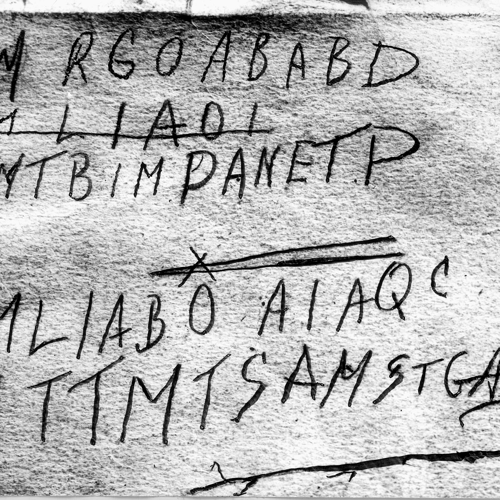 M RGOABABD
MLIAOI
MTBIMPANETP
MLIABOAIAQC
ITTMTSAMSTGAB